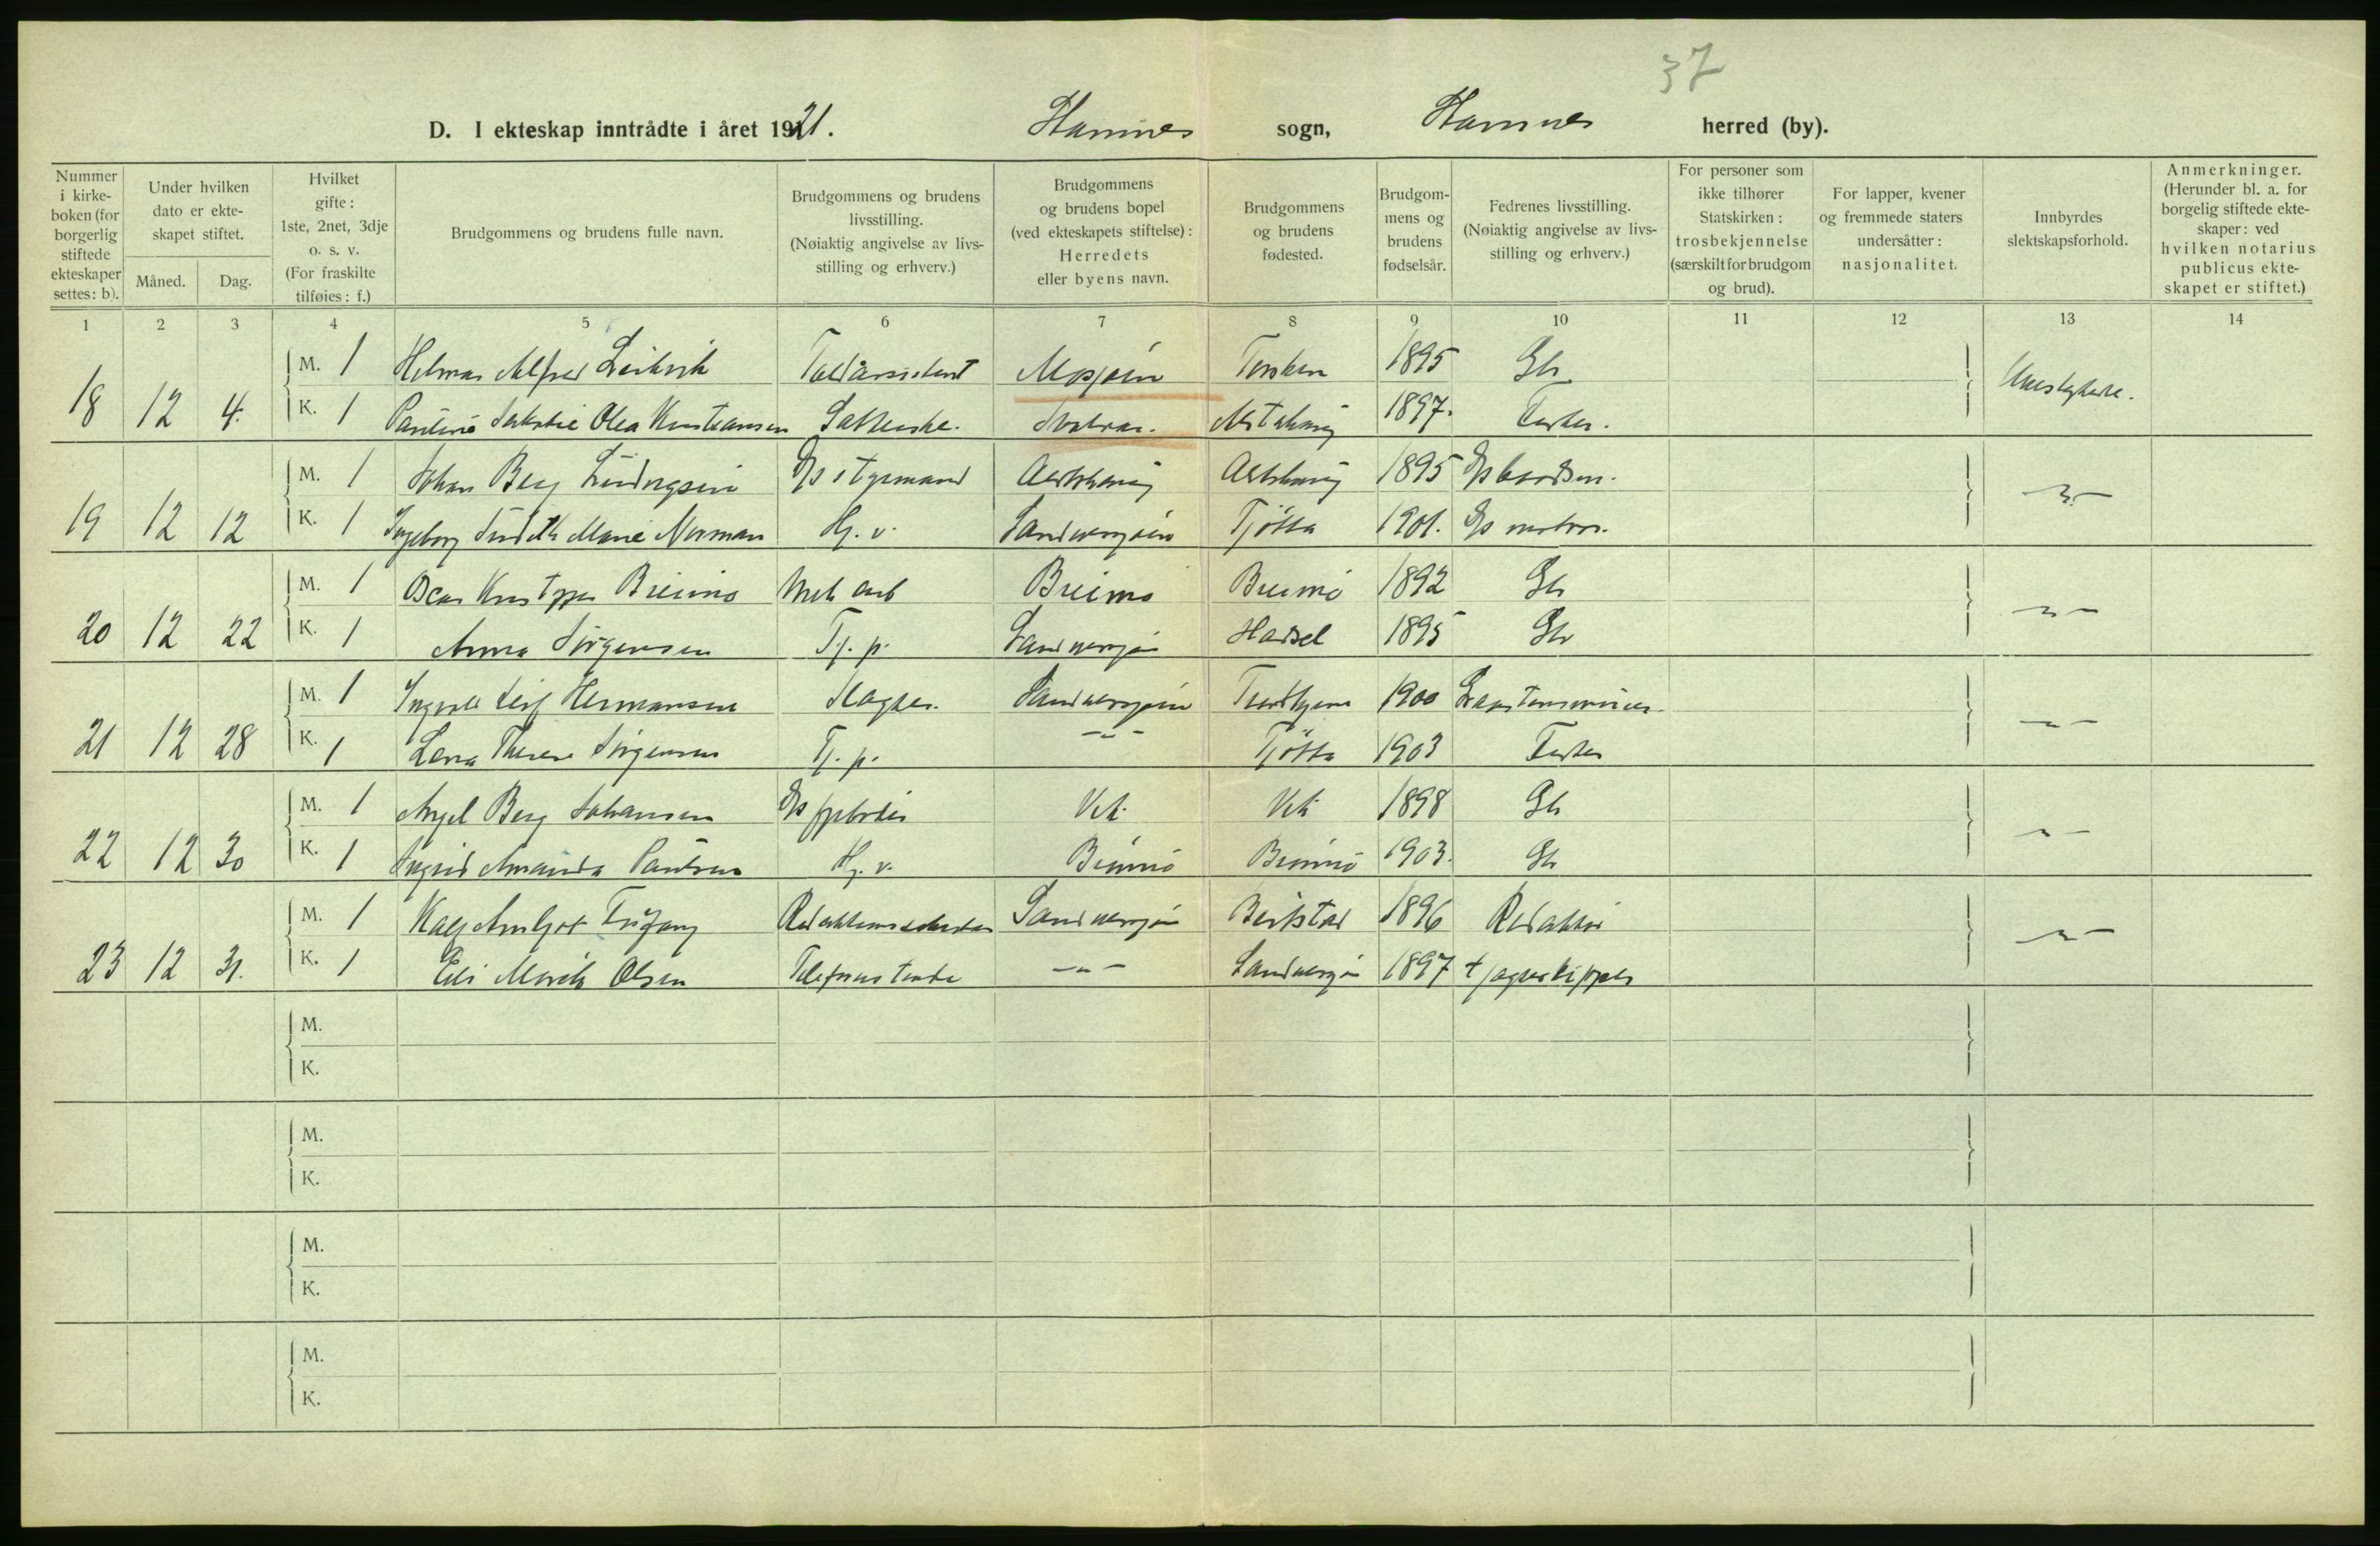 37
D. I ekteskap inntrådte i året 1921. Stamnes sogn, Stamnes herred (by).
Nummer i kirke- boken (for borgerlig stiftede ekteskaper settes: b).
Under hvilken dato er ekte- skapet stiftet.
Måned. Dag.
Hvilket gifte: 1ste, 2net, 3dje o. s. v. (For fraskilte tilføies: f.)
Brudgommens og brudens fulle navn.
Brudgommens og brudens livsstilling. (Nøiaktig angivelse av livs- stilling og erhverv.)
Brudgommens og brudens bopel (ved ekteskapets stiftelse): Herredets eller byens navn.
Brudgommens og brudens fødested.
Brudgom- mens og brudens fødselsår.
Fedrenes livsstilling. (Nøiaktig angivelse av livs- stilling og erhverv.)
For personer som ikke tilhører Statskirken: trosbekjennelse (særskilt for brudgom og brud).
For lapper, kvener og fremmede staters undersåtter: nasjonalitet.
Innbyrdes slektskapsforhold.
Anmerkninger. (Herunder bl. a. for borgelig stiftede ekte- skaper: ved hvilken notarius publicus ekte- skapet er stiftet.)
1 2 3 4 5 6 7 8 9 10 11 12 13 14
M. 1 Hilmar Alfred Toldassistent Mosjøen Torsken 1895 Gb
18 12 4. K. 1 Pauline Olea Kristiansen Svolvær. Alstahaug 1897. Fisker. Ubeslektede.
M. 1 Johan Berg D/s styrmand Alstahaug Alstahaug 1895 D/s baadsm.
19 12 12 K. 1 Ingeborg Marie Norman Hj. v. Sandnessjøen Tjøtta 1901. D/s matros. - " -
M. 1 Oscar Brønnø Brønnø 1892 Gb
20 12 22 K. 1 Anna Jørgensen Tj. p. Sandnessjøen Hadsel 1895 Gb - " -
M. 1 Leif Hermansen Slagter. Sandnessjøen Trondhjem 1900
21 12 28 K. 1 Lena Therese Jørgensen Tj. p. - " - Tjøtta 1903 Fisker - " -
M. 1 Berg Johansen D/s fyrbøter Vik Vik 1898 Gb
22 12 30 K. 1 Ingrid Amanda Paulsen Hj. v. Brønnø Brønnø 1903. Gb - " -
M. 1 Sandnessjøen Beitstad 1896 Redaktør
23 12 31. K. 1 Olsen Sandnessjøen 1897 - " -
M.
K.
M.
K.
M.
K.
M.
K.